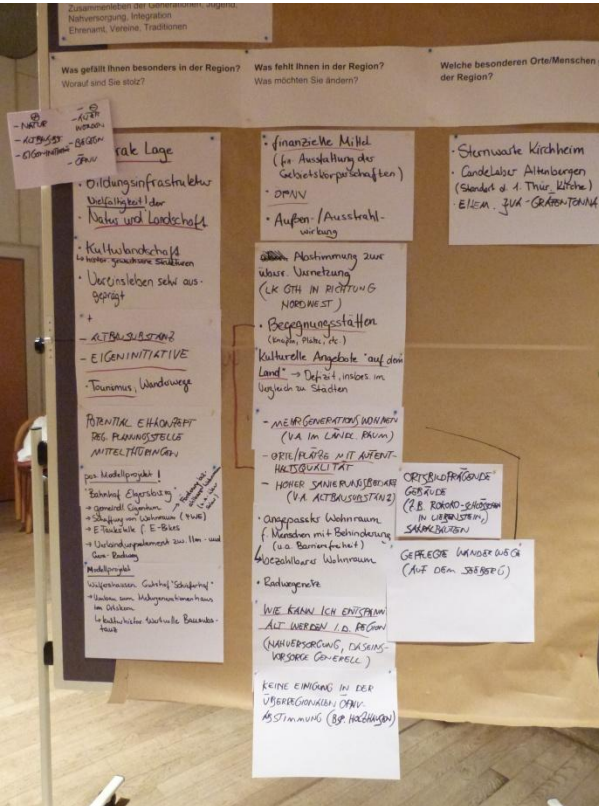 Zusammenleben der Generationen, Jugend,
Nahversorgung, Integration
Ehrenamt, Vereine, Traditionen
Was gefällt Ihnen besonders in der Region?
Worauf sind Sie stolz?
Was fehlt Ihnen in der Region?
Was möchten Sie ändern?
Welche besonderen Orte/Menschen
der Region?
- NATUR
- ALTBAUSUBST
- EIGENINITIATIVE
- ALT
WERDEN
- ÖPNV
rale Lage
• Bildungsinfrastruktur
Vielfältigkeit! der
• Natur und Landschaft
• Kulturlandschaft
Strukturen
• Vereinsleben sehr aus-
geprägt
+
- ALTBAUSUBSTANZ
- EIGENINITIATIVE
- Tourismus, Wanderwege
POTENTIAL EHKONZEPT
REG. PLANUNGSSTELLE
MITTELTHÜRINGEN
pos. Modellprojekt!
"Bahnhof Elgersburg"
→ Schaffung von Wohnraum (4 WE)
→ E-Tankstelle f. E-Bikes
→ Verbindungselement zw. Ilm- und
Gera-Radweg
Modellprojekt
Wülfershausen Gutshof "Schäferhof"
→ Umbau zum Mehrgenerationenhaus
im Ortskern
• finanzielle Mittel
(für Ausstattung der
Gebietskörperschaften)
• ÖPNV
• Außen-/Ausstrahl-
wirkung
Abstimmung zur
überr. Vernetzung
(LK GTH IN RICHTUNG
NORDWEST)
• Begegnungsstätten
(Kneipe, Plätze, etc.)
Kulturelle Angebote "auf dem
Land" → Defizit, insbes. im
Vergleich zu Städten
- MEHRGENERATIONSWOHNEN
(V.A. IM LÄNDL. RAUM)
- ORTE/PLÄTZE MIT AUFENT-
HALTSQUALITÄT
- HOHER SANIERUNGSBEDARF
(V.A. ALTBAUSUBSTANZ)
• angepasster Wohnraum
f. Menschen mit Behinderung
(u.a. Barrierefreiheit)
bezahlbarer Wohnraum
• Radwegenetz
WIE KANN ICH ENTSPANN
ALT WERDEN I.D. REGION
(NAHVERSORGUNG, DASEINS-
VORSORGE GENERELL)
KEINE EINIGUNG IN DER
ÜBERREGIONALEN ÖPNV-
ABSTIMMUNG (BSP. HOLZHAUSEN)
• Sternwarte Kirchheim
• Candelaber Altenbergen
(Standort d. 1. Thür. Kirche)
• EHEM. JVA - GRÄFENTONNA
ORTSBILDPRÄGENDE
GEBÄUDE
(Z.B. ROKOKO-SCHLÖSSCHEN
IN LIEBENSTEIN,
SAKRALBAUTEN
GEPFLEGTE WANDERWEGE
(AUF DEM SEEBERG)